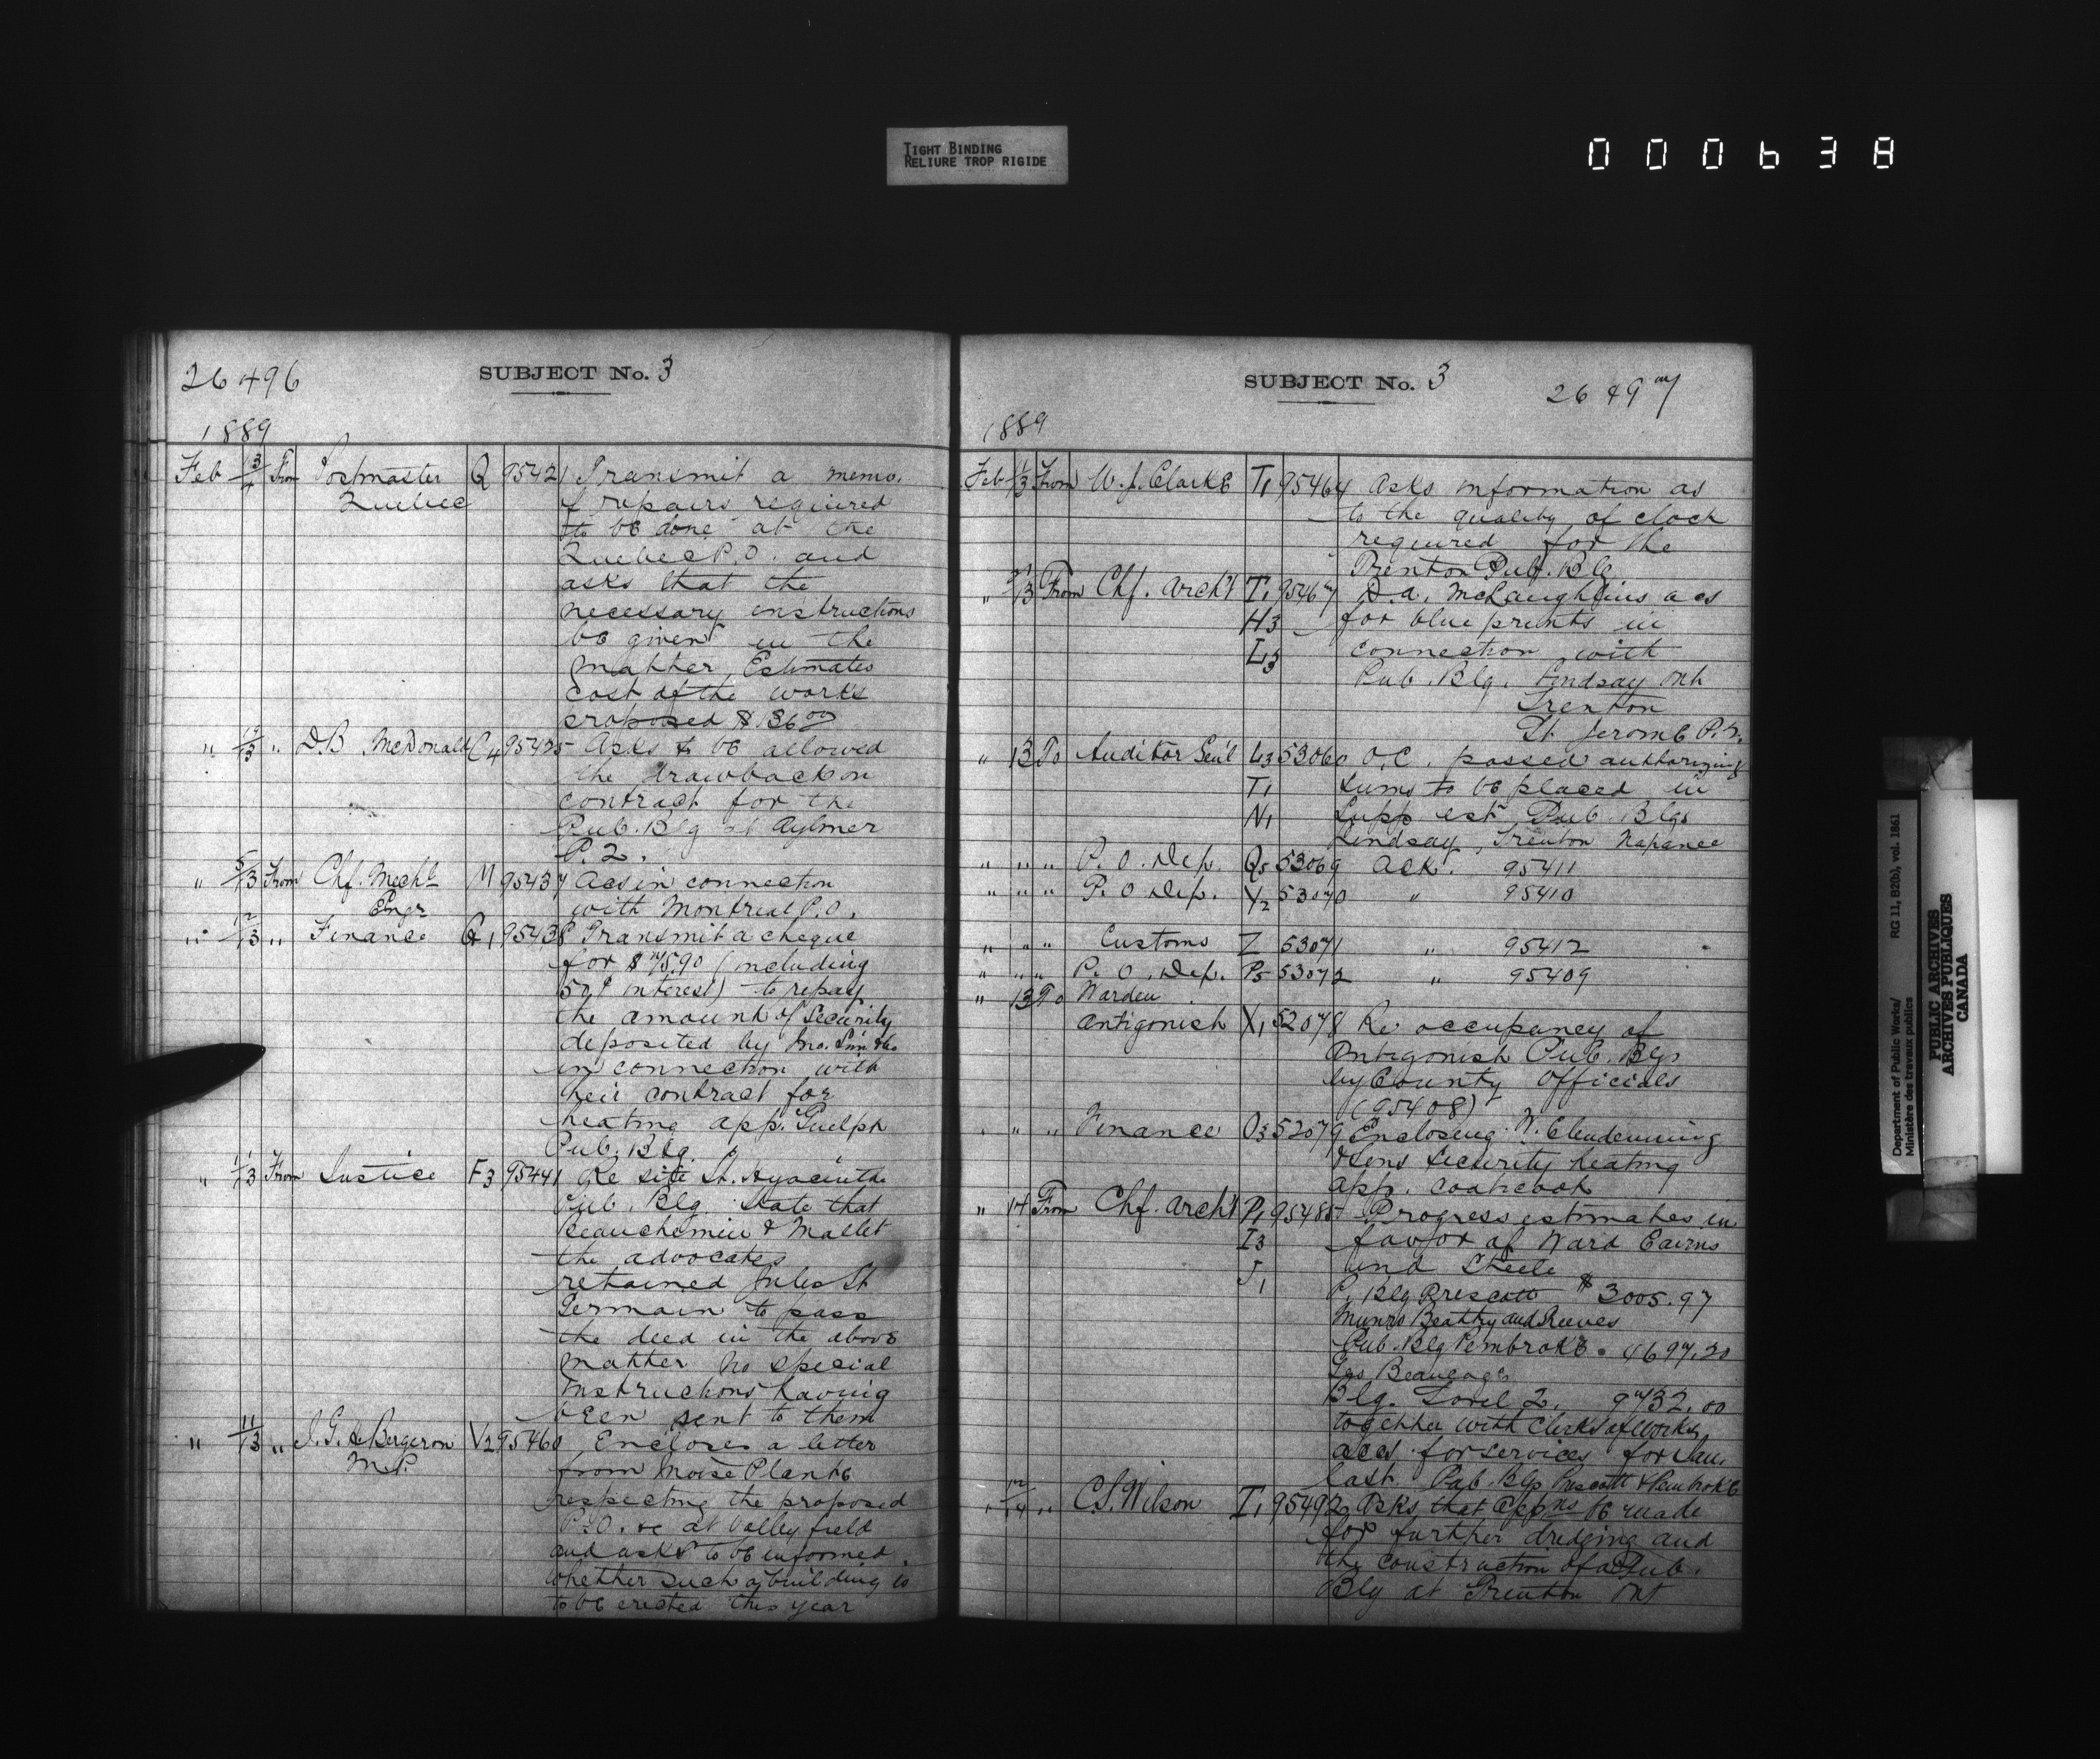 TIGHT BINDING
RELIURE TROP RIGIDE
000638
26496
SUBJECT No. 3
1889
Feb 13 From Postmaster Q 95421 Transmit a memo.
Quebec of repairs required
to be done at the
Quebec P.O. and
asks that the
necessary instructions
be given in the
matter. Estimates
cost of the works
proposed $136 00
" 12/13 " D.B McDonald C4 95425 Asks to be allowed
the drawback on
contract for the
Pub. Blg at Aylmer
P.2.
" 5/13 From Chf. Mechl M 95437 Acs in connection
Engr with Montreal P.O.
" 12/13 " Finance Q1 95438 Transmit a cheque
for $75.90 (including
50¢ interest) to repay
the amount of Security
deposited by Jno.
in connection with
their contract for
heating app. Guelph
Pub. Blg.
" 11/13 From Justice F3 95441 Re site St. Hyacinthe
Pub. Blg. State that
Beauchemin & Mallet
the advocates
retained Jules St
Germain to pass
the deed in the above
matter no special
instructions having
been sent to them
" 11/13 " J.G. de Bergeron V2 95460 Encloses a letter
M.P. from Moise Plante
respecting the proposed
P.O. &c at Valleyfield
and asks to be informed
whether such a building is
to be erected this year
SUBJECT No. 3
26497
1889
Feb 11/13 From W.J. Clarke T1 95464 Asks information as
to the quality of clock
required for the
Trenton Pub. Blg
" 13 From Chf. Archt T1 95467 D.A. McLaughlins acs
H3 for blue prints in
L3 connection with
Pub. Blg. Lindsay Ont
Trenton
St. Jerome P.2.
" 13 To Auditor Genl L3 53060 O.C. passed authorizing
T1 sums to be placed in
N1 Supp. est Pub. Blgs
Lindsay, Trenton Napanee
" " " P.O. Dep. Q5 53069 Ack. 95411
" " " P.O Dep. Y2 53070 " 95410
" " " Customs Z 53071 " 95412
" " " P.O. Dep. P5 53072 " 95409
" 13 To Warden
Antigonish X1 52078 Re occupancy of
Antigonish Pub. Blgs
by County Officials
(95408)
" " " Finance O3 52079 Enclosing W. Clendenning
& Sons Security heating
app. Coaticook
" 14 From Chf. Archt P1 95485 Progress estimates in
I3 favor of Ward Cairns
J1 and Steele
P. Blg Prescott $3005.97
Munro Beatty and Reeves
Pub. Blg Pembroke. 4697.20
Geo Beaucage
Blg. Sorel 2. 9732.00
together with Clerks of Works
accs for services for Jan.
last. Pub. Blgs Prescott & Pembroke
" 12/14 " C.S. Wilson T1 95492 Asks that appns be made
for further dredging and
the construction of a Pub.
Blg at Trenton Ont
Department of Public Works/ RG 11, B2(b), vol. 1861
Ministère des travaux publics
PUBLIC ARCHIVES
ARCHIVES PUBLIQUES
CANADA